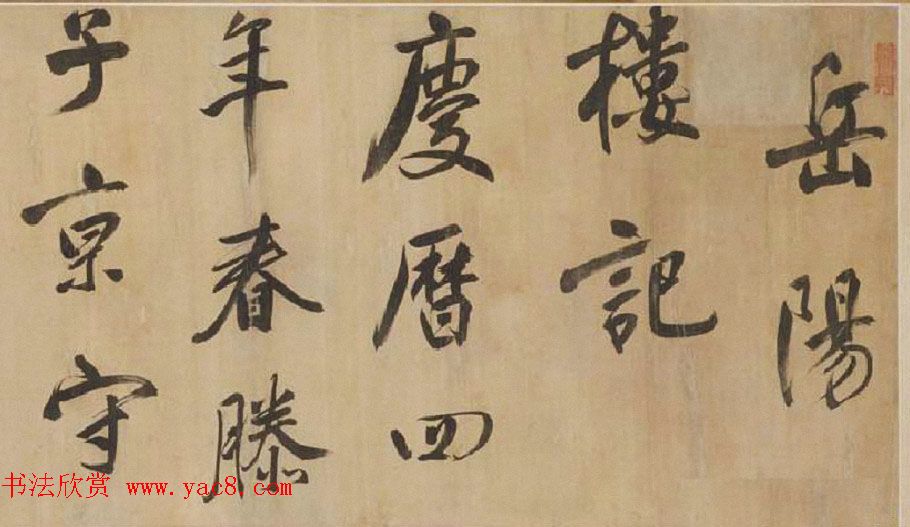 岳陽
樓記
慶曆四
年春滕
子京守
书法欣赏 www.yac8.com